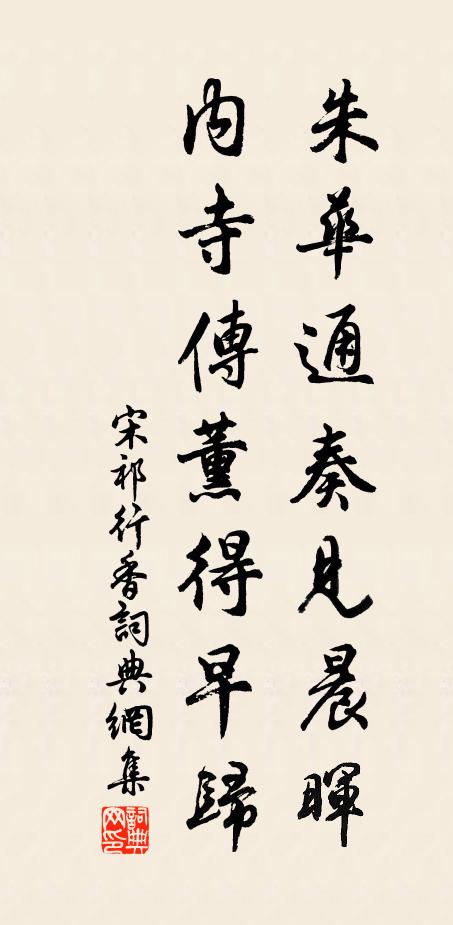 朱華通奏見晨暉
內寺傳薰得早歸
宋祁行香詞典網集
詞典网印